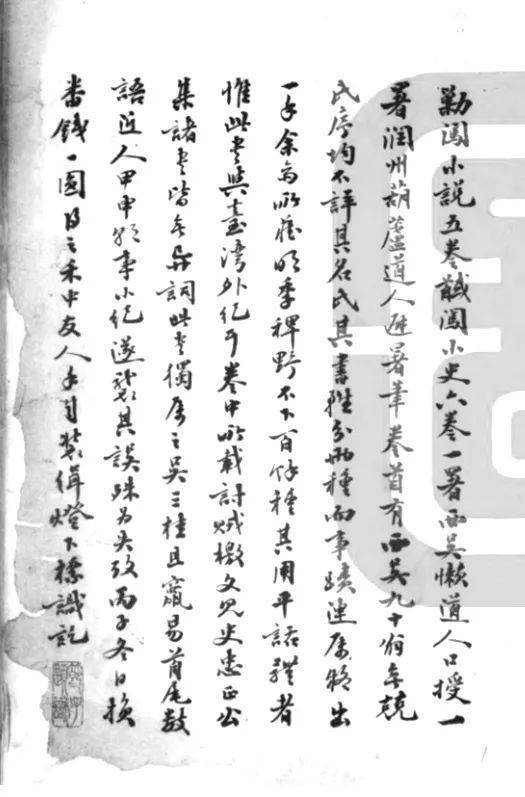 勦闖小説五卷馘闖小史六卷一署西吳懶道人口授一
署潤州葫蘆道人避暑筆卷首有西吳九十翁無競
氏序均不詳其名氏其書雖分兩種而事蹟連屬出
一手余所明季稗野不下百餘種其用平話體者
惟此書與臺灣外紀耳卷中所載討賊檄文見史忠正公
集諸書皆無異詞此書獨屬之吳三桂且竄易首尾數
語近人甲申朝事小紀遂襲其誤殊為失攷丙子冬日換
番錢一圓得之禾中友人手自裝緝燈下標識訖